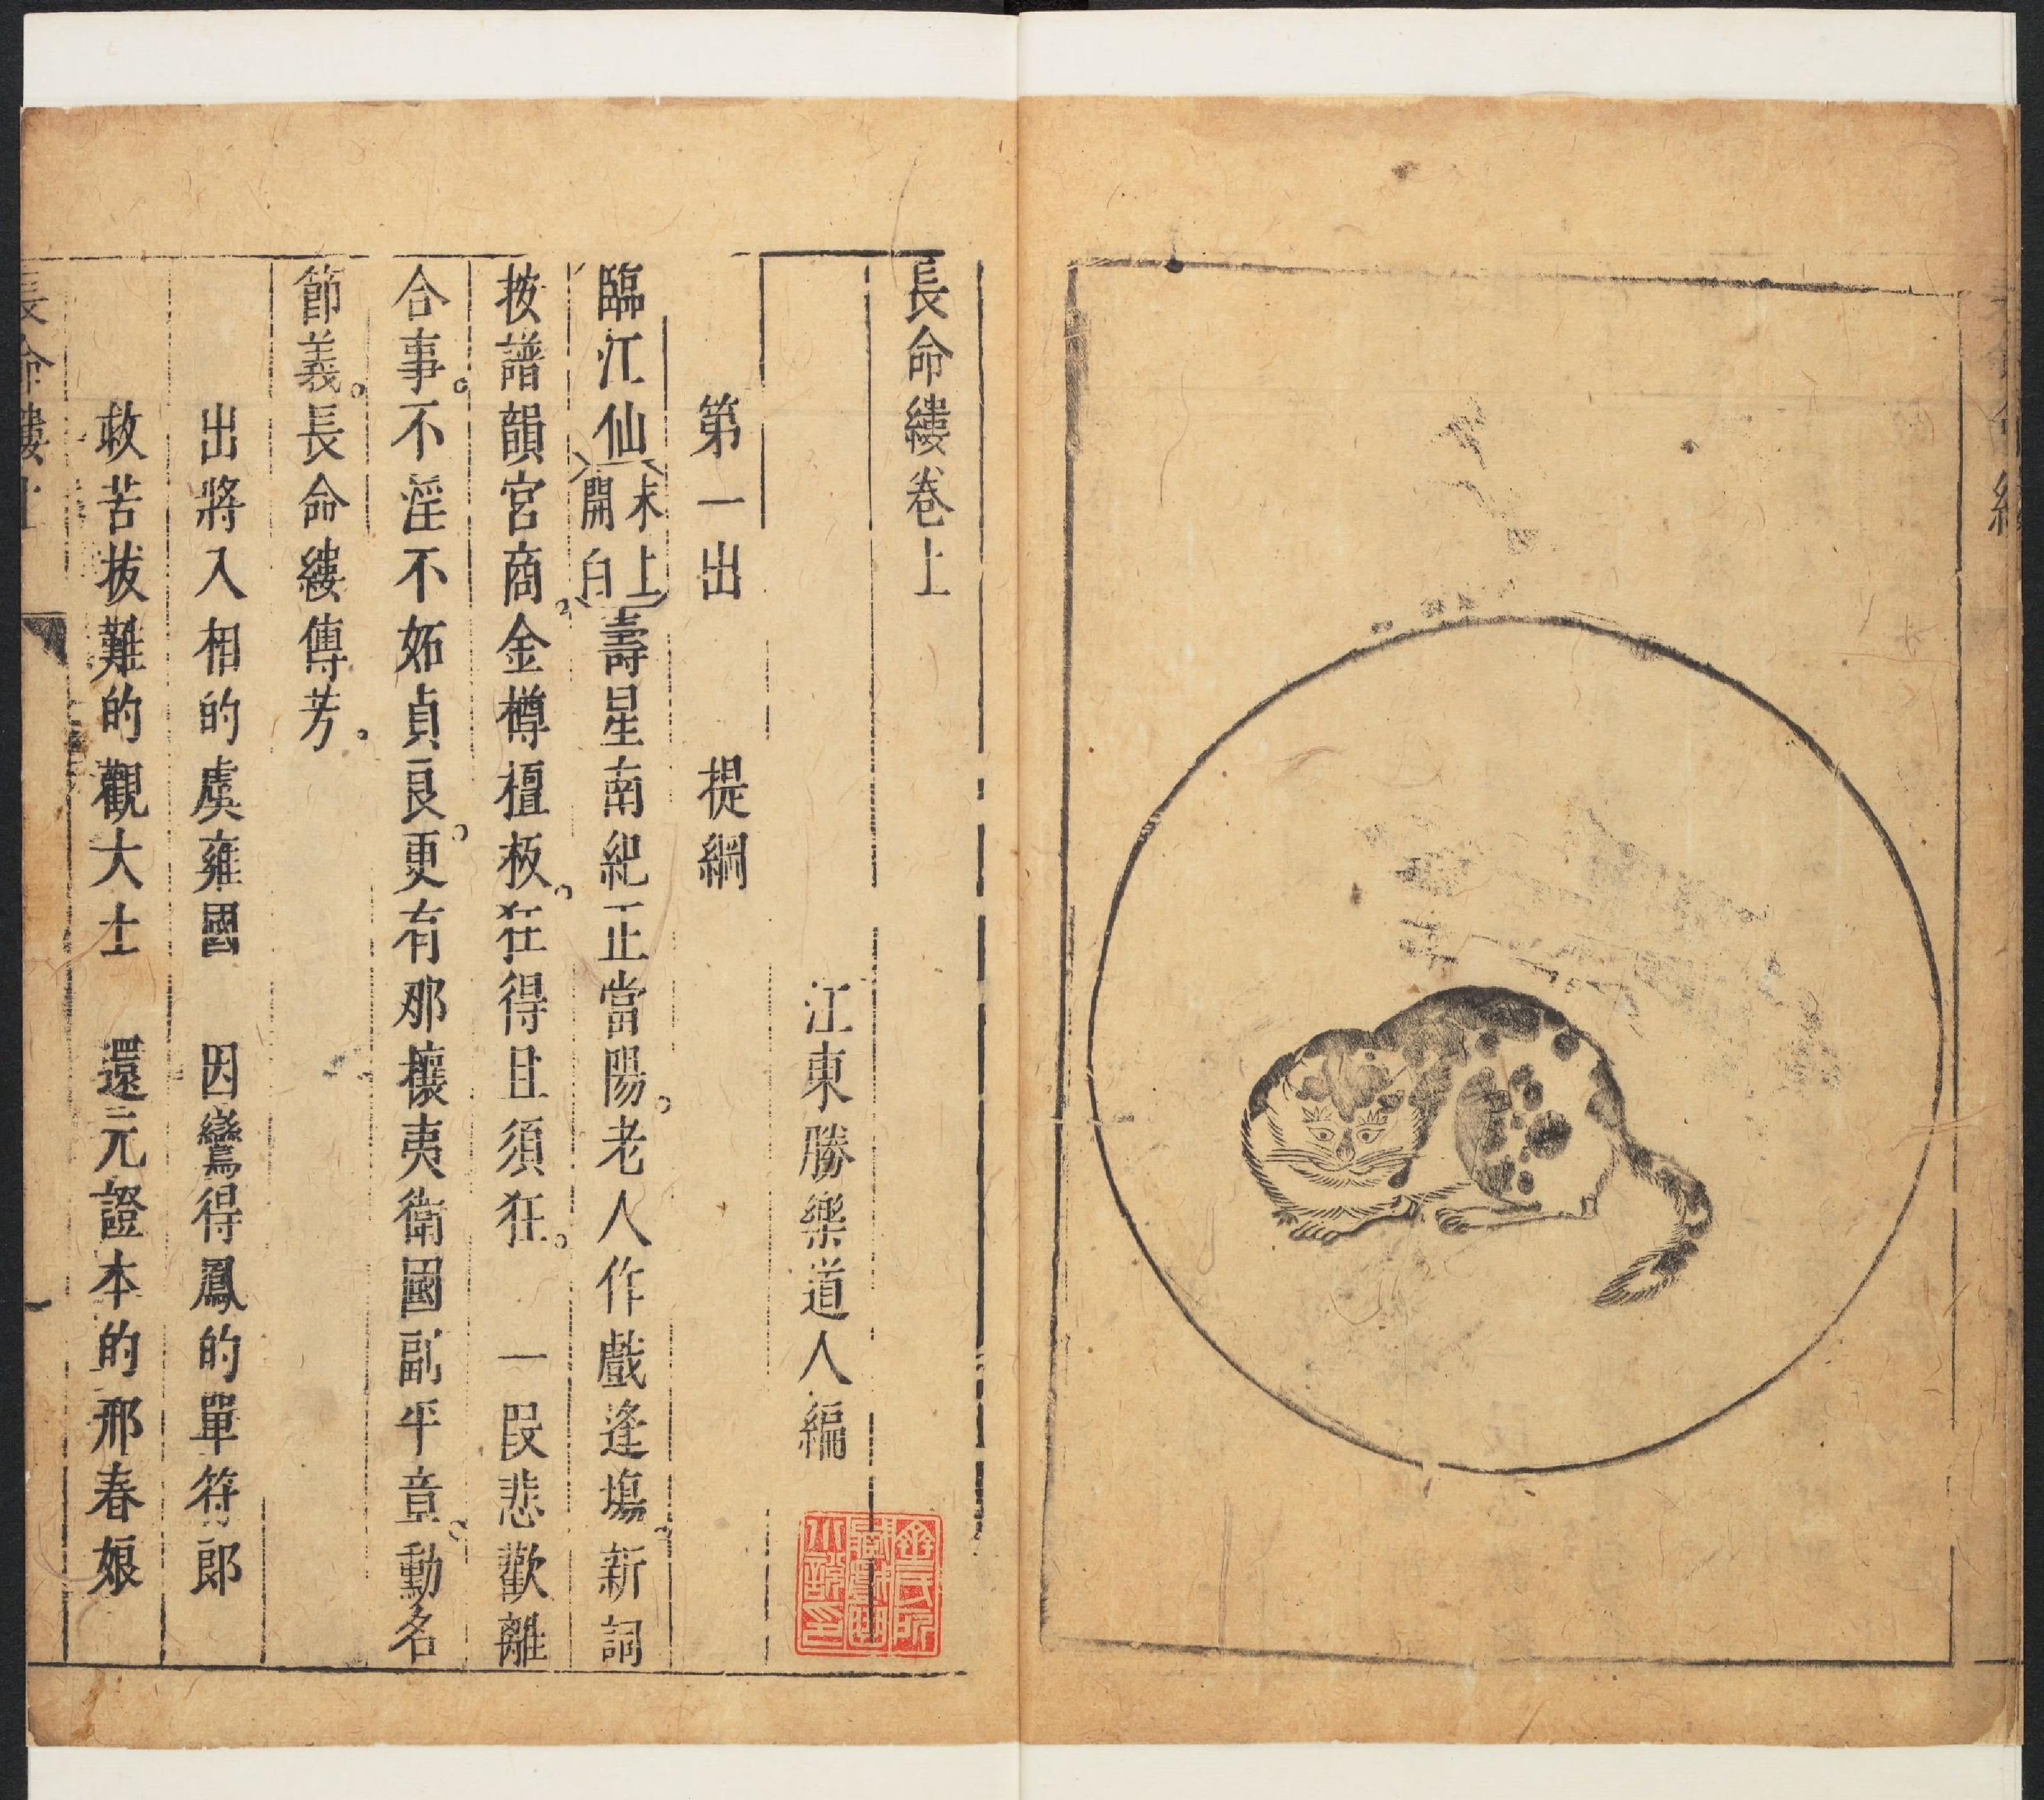 長命縷卷上
江東勝樂道人編
第一出 提綱
臨江仙末上開白壽星南紀正當陽。老人作戲逢塲。新詞
按譜韻宮商。金樽檀板。狂得且須狂。 一叚悲歡離
合事。不淫不妬貞良。更有那攘夷衛國副平章。勳名
節義。長命縷傳芳。
出將入相的虞雍國 因鸞得鳳的單符郎
救苦拔難的觀大士 還元證本的邢春娘
長命縷上
金氏所
藏戲曲
小說印